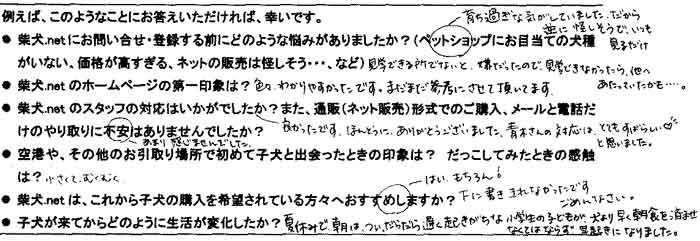 例えば、このようなことにお答えいただければ、幸いです。
育ち過ぎな気がしていました。だから
逆に怪しそうで、いつも
見るだけ
● 柴犬.netにお問い合せ・登録する前にどのような悩みがありましたか？（ペットショップにお目当ての犬種
がいない、価格が高すぎる、ネットの販売は怪しそう・・・、など）見学できる所でないと、嫌だったので、見学できなかったら、他へ
あたっていたかも….。
● 柴犬.netのホームページの第一印象は？色々、わかりやすかったです。まだまだ参考にさせて頂いてます。
● 柴犬.netのスタッフの対応はいかがでしたか？また、通販（ネット販売）形式でのご購入、メールと電話だ
けのやり取りに不安はありませんでしたか？良かったです。ほんとうに、ありがとうございました。青木さんの対応は、とてもすばらしい♡
と思いました。
あまり感じませんでした。
● 空港や、その他のお引取り場所で初めて子犬と出会ったときの印象は？　だっこしてみたときの感触
は？小さくて、むくむく。
はい、もちろん！
● 柴犬.netは、これから子犬の購入を希望されている方々へおすすめしますか？下に書ききれなかったです
ごめんなさい。
● 子犬が来てからどのように生活が変化したか？夏休みで、朝は、ついだらだら遅く起きがちな小学生の子どもが、犬より早く朝食を済ませ
なくてはならず早起きになりました。